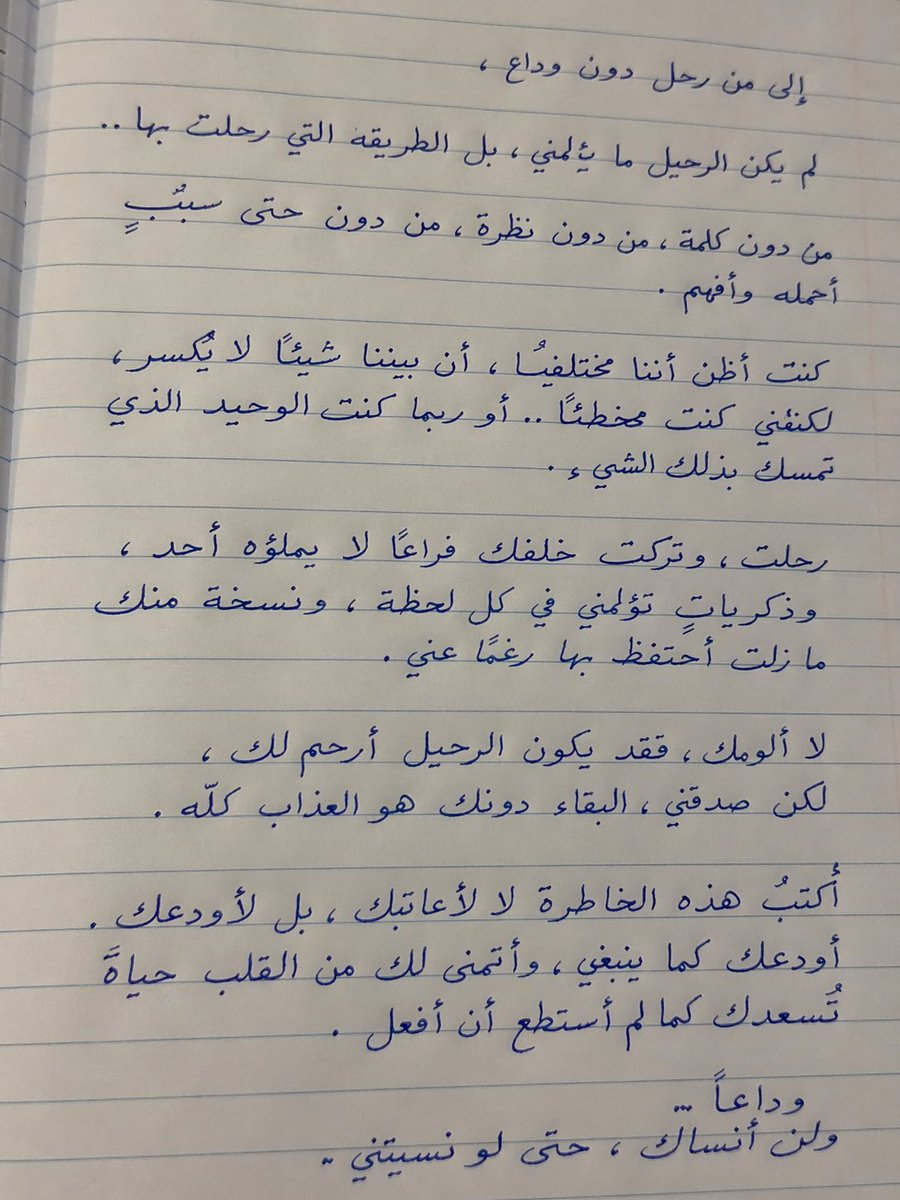 إلى من رحل دون وداع ،
لم يكن الرحيل ما يؤلمني ، بل الطريقه التي رحلت بها ..
من دون كلمة ، من دون نظرة ، من دون حتى سببٍ
أحمله وأفهم .
كنت أظن أننا ، أن بيننا شيئًا لا يُكسر ،
كنت مخطئًا .. أو ربما كنت الوحيد الذي
تمسك بذلك الشيء .
رحلت ، وتركت خلفك فراغًا لا يملؤه أحد ،
وذكرياتٍ تؤلمني في كل لحظة ، ونسخة منك
ما زلت أحتفظ بها رغمًا عني .
لا ألومك ، فقد يكون الرحيل أرحم لك ،
لكن صدقني ، البقاء دونك هو العذاب كلّه .
أُكتبُ هذه الخاطرة لا لأعاتبك ، بل لأودعك .
أودعك كما ينبغي ، وأتمنى لك من القلب حياةً
تُسعدك كما لم أستطع أن أفعل .
وداعاً ...
ولن أنساك ، حتى لو نسيتني ..